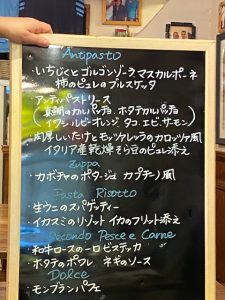 Antipasto
・いちじくとゴルゴンゾーラマスカルポーネ
柿のピュレのブルスケッタ
・アンティパストミース
(真鯛のカルパッチョ、ホタテカルパッチョ
イワシ ルビーオレンジ タコ エビ サーモン)
・肉厚しいたけとモッツァレッラのカロッツァ風
イタリア産乾燥そら豆のピュレ添え
Zuppa
・カボチャのポタージュ カプチーノ風
Pasta Risotto
・生ウニのスパゲッティー
・イカスミのリゾット イカのフリット添え
Secondo Pesce e Carne
・和牛ロースの一口ビステッカ
・ホタテのポワレ ネギのソース
Dolce
・モンブランパフェ